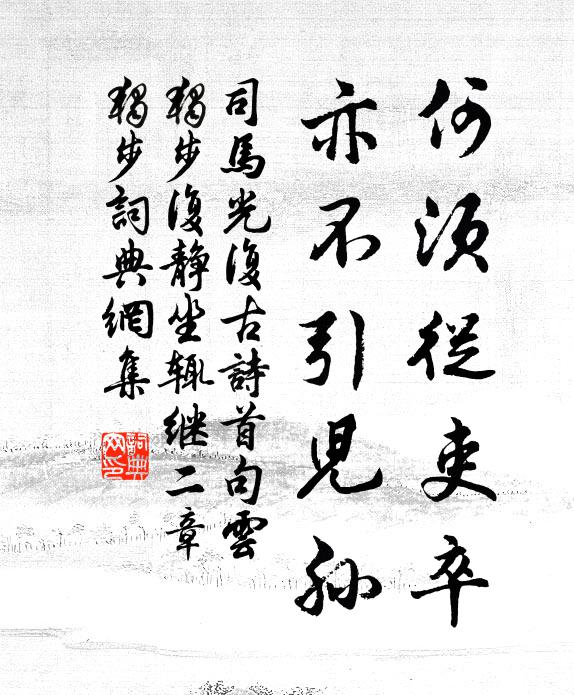 何須從吏卒
亦不引兒孫
司馬光復古詩首句雲
獨步復靜坐輒继二章
獨步詞典網集
詞典網印